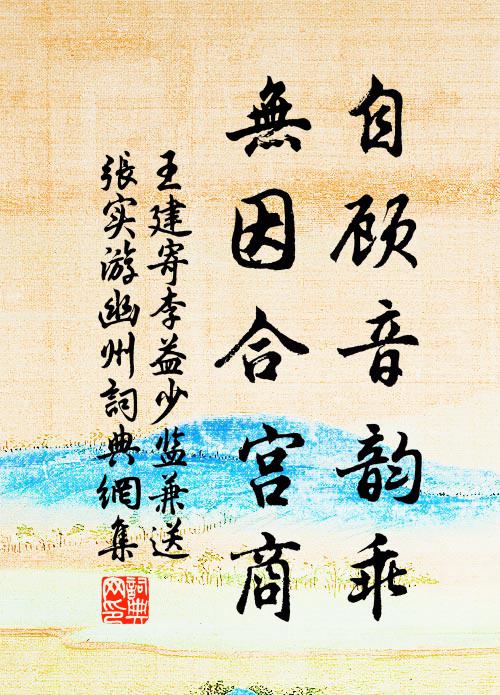 自顾音韵乖
無因合宫商
王建寄李益少监兼送
張实游幽州詞典網集